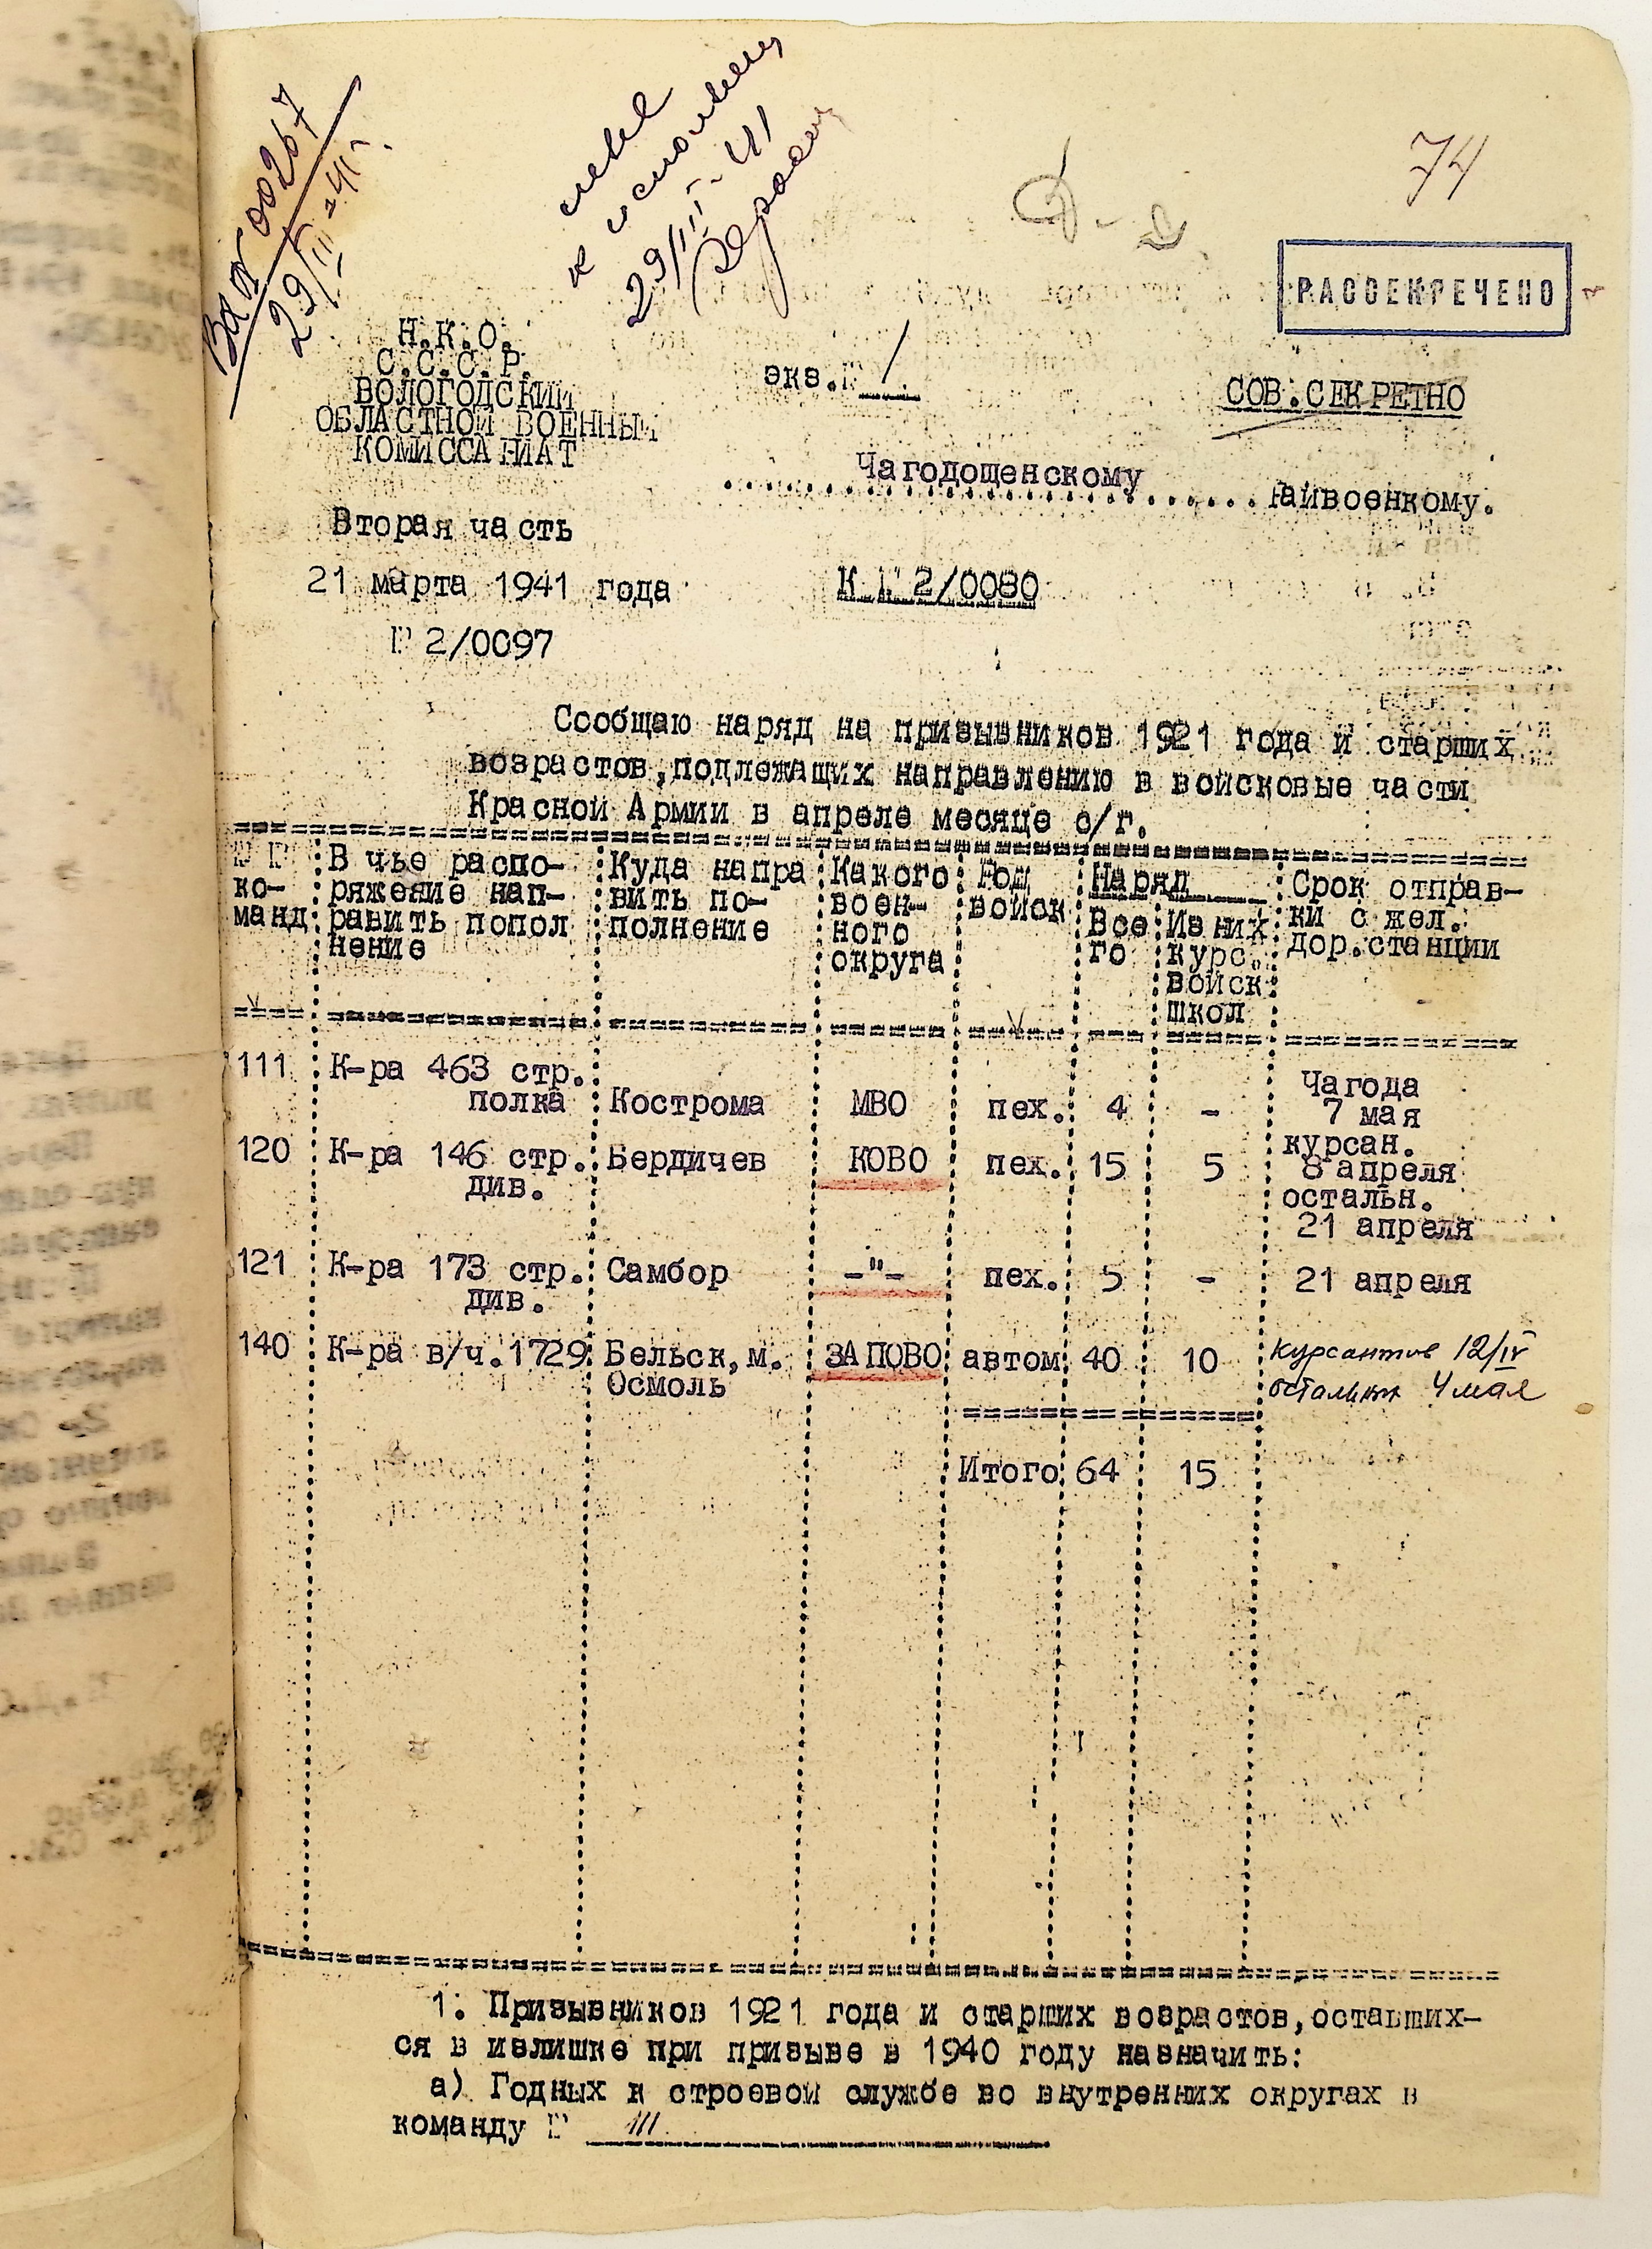 Вх № 00267
29/III-41 г.
к исполнен
29/III-41
74
РАССЕКРЕЧЕНО
Н.К.О.
С.С.С.Р.
ВОЛОГОДСКИЙ
ОБЛАСТНОЙ ВОЕННЫЙ
КОМИССАРИАТ
экз.№ 1
СОВ.СЕКРЕТНО
Чагодощенскому Райвоенкому.
Вторая часть
21 марта 1941 года
К № 2/0080
№ 2/0097
Сообщаю наряд на призывников 1921 года и старших
возрастов,подлежащих направлению в войсковые части
Красной Армии в апреле месяце с/г.
№ №
ко-
манд
В чье распо-
ряжение нап-
равить попол
нение
Куда напра
вить по-
полнение
Какого
воен-
ного
округа
Род
войск
Наряд
Все
го
Из них
курс.
войск
школ
Срок отправ-
ки с жел.
дор.станции
111 К-ра 463 стр.
полка Кострома МВО пех. 4 -
Чагода
7 мая
120 К-ра 146 стр.
див. Бердичев КОВО пех. 15 5
курсан.
8 апреля
остальн.
21 апреля
121 К-ра 173 стр.
див. Самбор -"- пех. 5 - 21 апреля
140 К-ра в/ч.1729 Бельск,м.
Осмоль ЗАПОВО автом 40 10
курсантов 12/IV
остальн 4 мая
Итого 64 15
1. Призывников 1921 года и старших возрастов,оставших-
ся в излишке при призыве в 1940 году назначить:
а) Годных к строевой службе во внутренних округах в
команду № 111